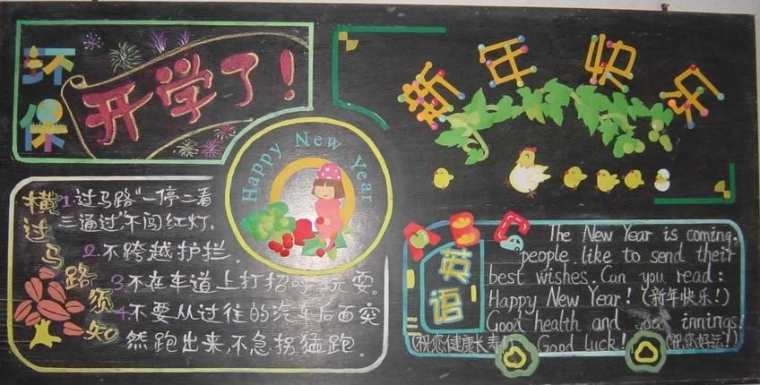 环保
开学了!
新年快乐
Happy New Year
横过马路须知
1.过马路"一停二看
三通过"不闯红灯.
2.不跨越护拦.
3.不在车道上打招呼玩耍。
4.不要从过往的汽车后面突
然跑出来,不急拐猛跑.
英语
The New Year is coming,
people like to send their
best wishes. Can you read:
Happy New Year! (新年快乐!)
Good health and good innings!
(祝您健康长寿!) Good luck! (祝您好运!)